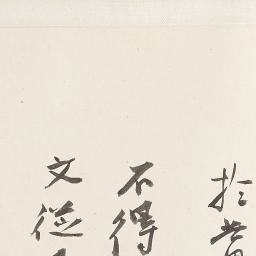 於
不得
文從